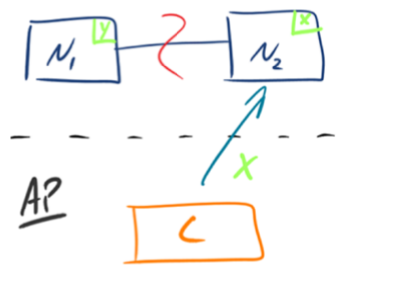 N₁ y
N₂ x
x
AP
C